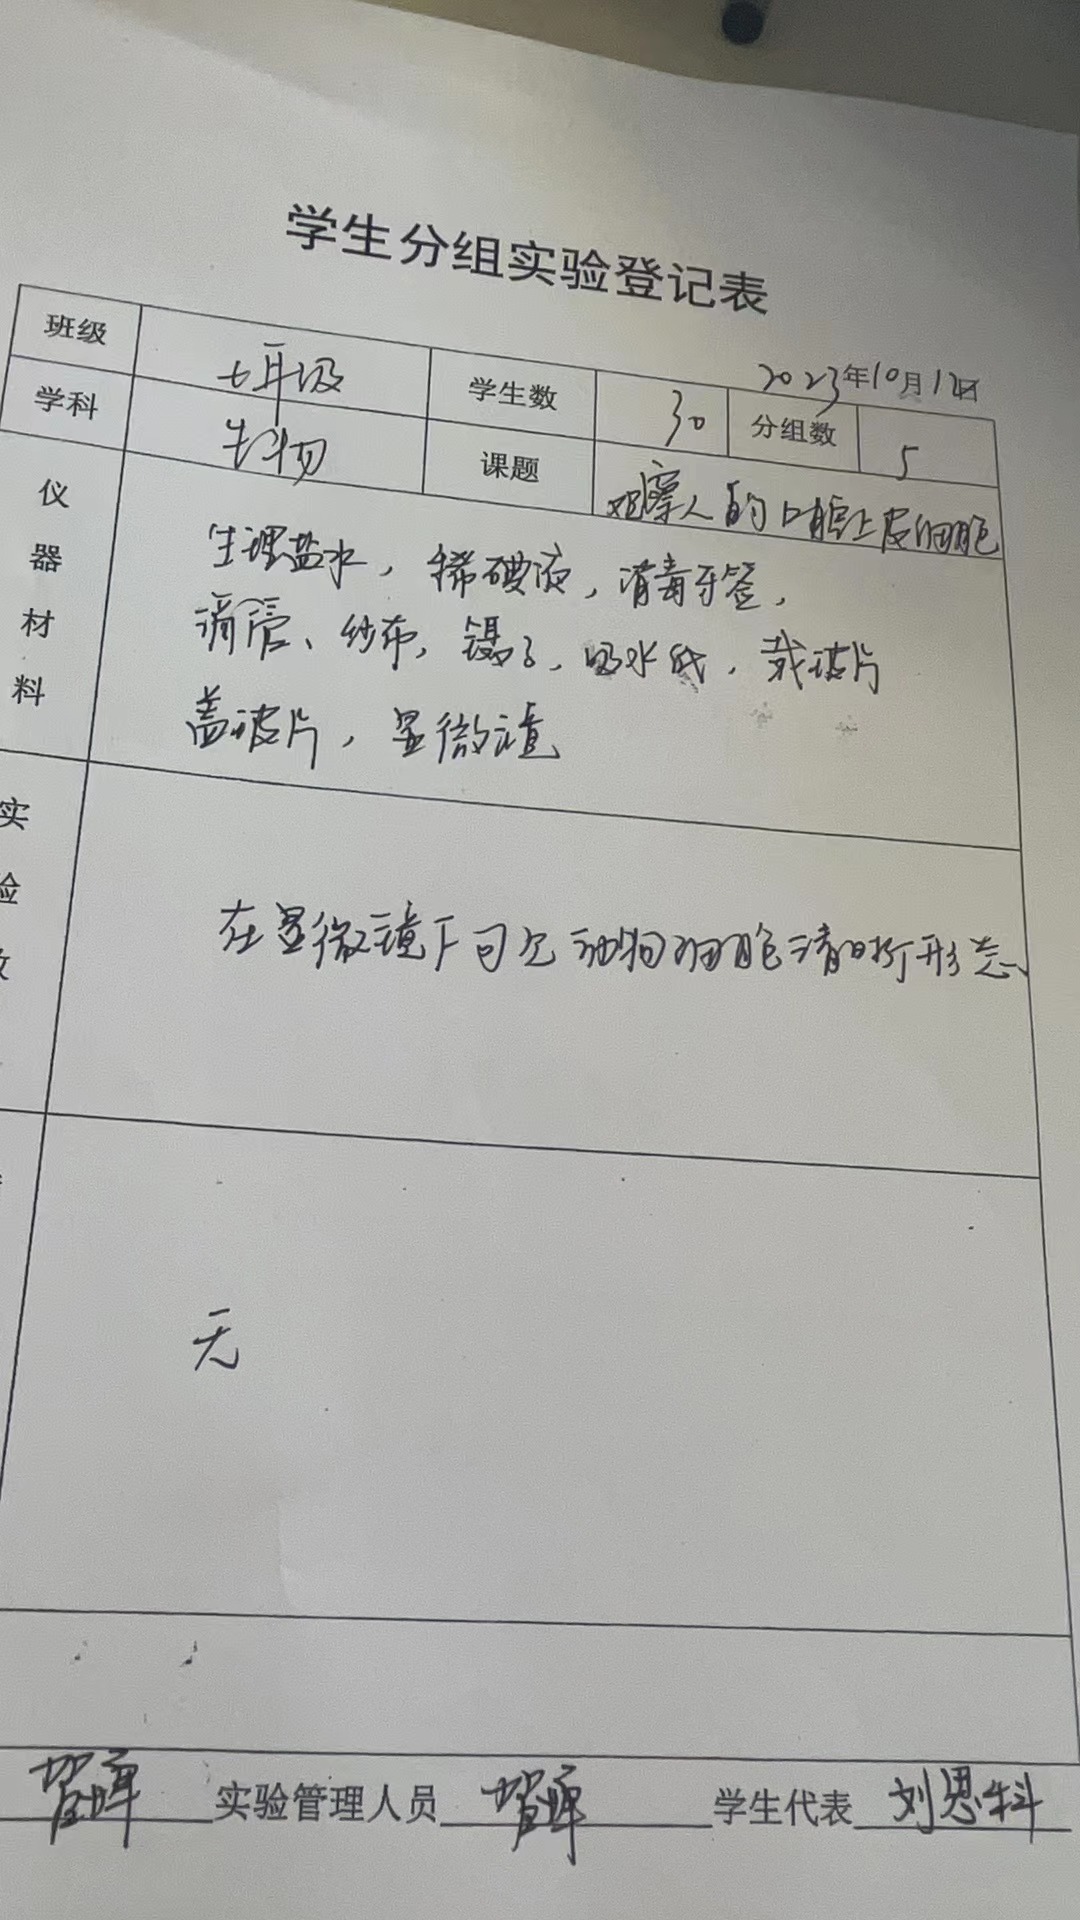 学生分组实验登记表
2023年10月12日
班级 七年级 学生数 30 分组数 5
学科 生物 课题 观察人的口腔上皮细胞
仪器材料
生理盐水，稀碘液，消毒牙签，
滴管、纱布，镊子，吸水纸，载玻片
盖玻片，显微镜
实验效
在显微镜下可见动物细胞清晰形态
无
实验管理人员 学生代表 刘思科